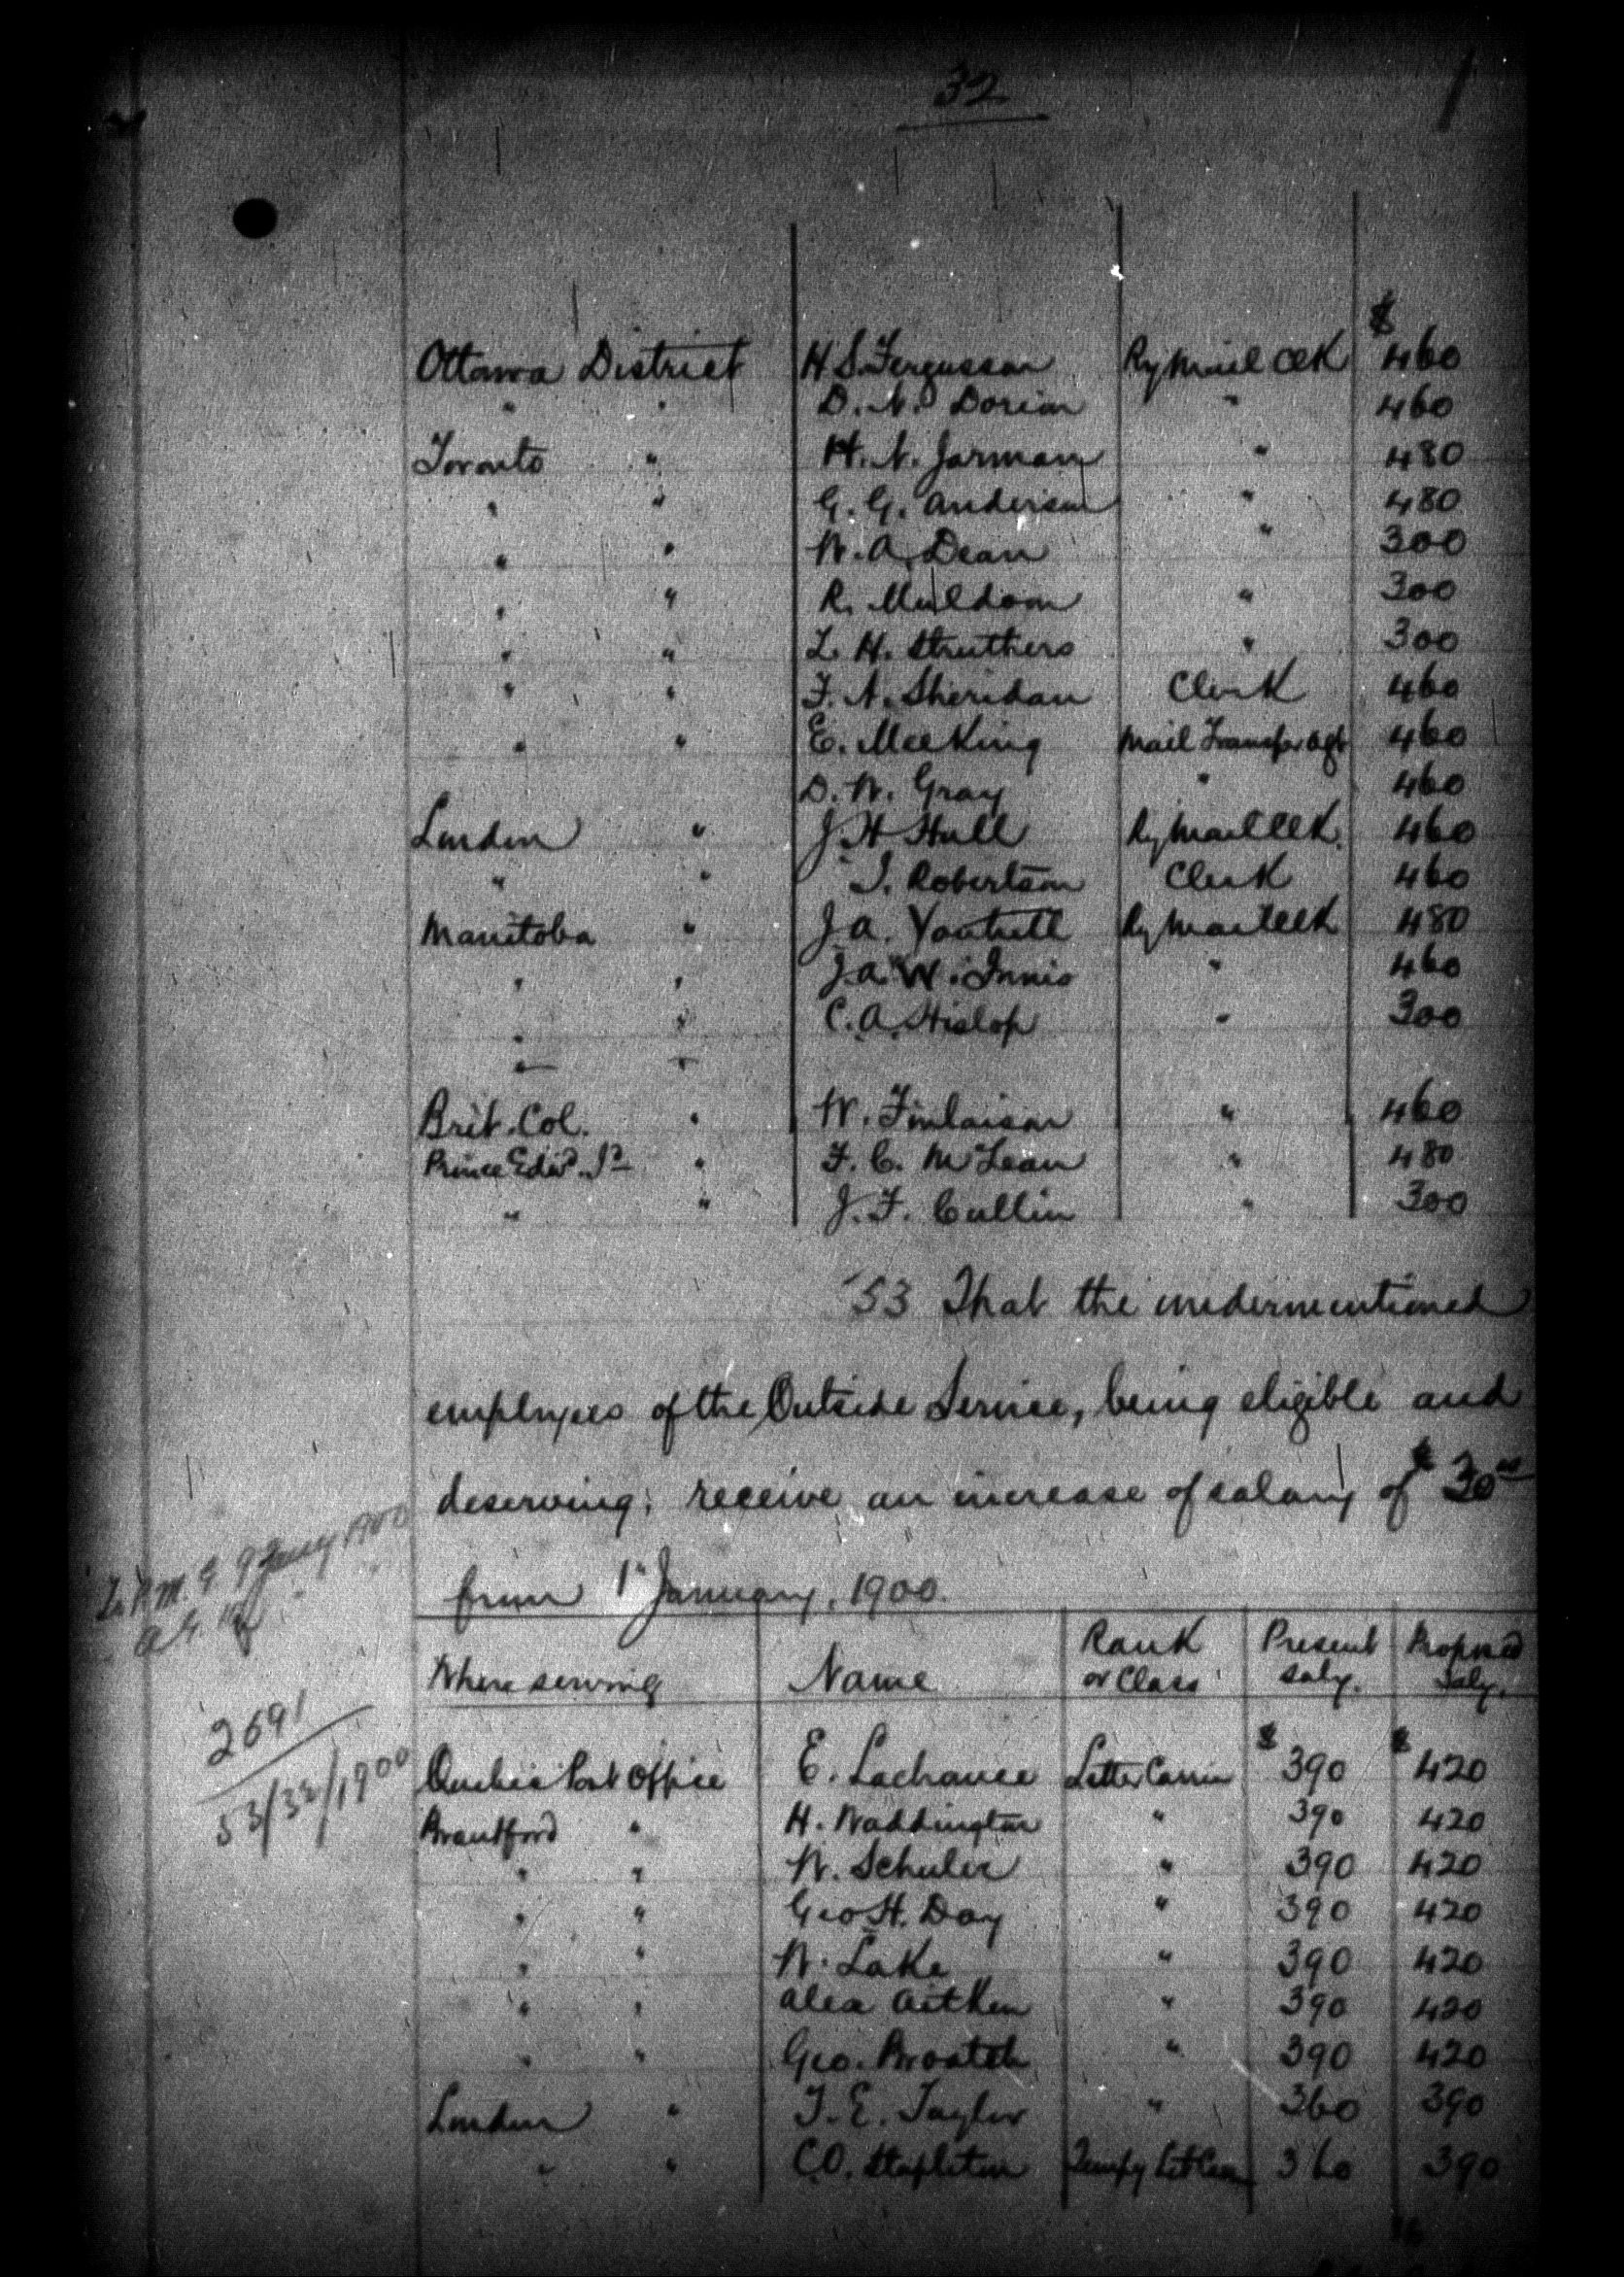 32
$
Ottawa District H. S. Fergusson Ry Mail Clk 460
" " D. N. Dorion " 460
Toronto " H. N. Jarman " 480
" " G. G. Anderson " 480
" " W. A. Dean " 300
" " R. Muldoon " 300
" " L. H. Struthers " 300
" " F. A. Sheridan Clerk 460
" " E. Meeking Mail Transfer Agt 460
D. W. Gray " 460
London " J. H. Hull Ry Mail Clk. 460
" " J. Robertson Clerk 460
Manitoba " J. A. Ry Mail Clk 480
" " J. A. W. Innis " 460
" " C. A. Hislop " 300
" "
Brit. Col. " W. Finlaison " 460
Prince Edwd. Id " F. C. McLean " 480
" " J. F. Cullin " 300
53 That the undermentioned
employees of the Outside Service, being eligible and
deserving, receive an increase of salary of $30
from 1st January, 1900.
To P.M.G. 9 Jany 1900
Where serving Name Rank or Class Present Saly. Proposed Saly.
2691
53/32/1900
Quebec Post Office E. Lachance Letter Carrier $390 $420
Brantford " H. Waddington " 390 420
" " W. Schuler " 390 420
" " Geo H. Day " 390 420
" " W. Lake " 390 420
" " Alex Aitken " 390 420
" " Geo. Broatch " 390 420
London " T. E. Taylor " 360 390
" " C. O. Stapleton Tempy Let Carr 360 390